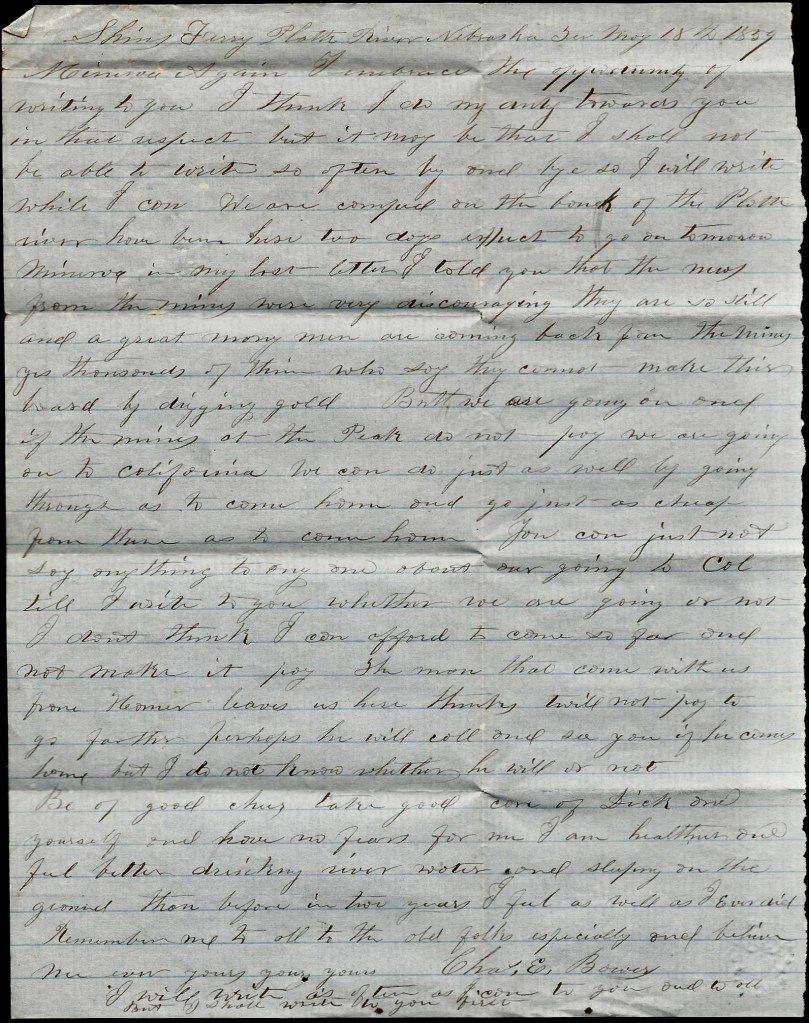 Shins Ferry Platte River Nebraska Ter May 18th 1859
Minerva Again I embrace the opportunity of
writing to you I think I do my duty towards you
in that respect but it may be that I shall not
be able to write so often by and bye so I will write
while I can We are camped on the bank of the Platte
river have been here two days expect to go on tomorow
Minerva in my last letter I told you that the news
from the mines were very discouraging they are so still
and a great many men are coming back from the mines
yes thousands of them who say they cannot make their
board by digging gold But we are going on and
if the mines at the Peak do not pay we are going
on to California We can do just as well by going
through as to come home and go just as cheap
from there as to come home You can just not
say anything to any one about our going to Cal
till I write to you whether we are going or not
I dont think I can afford to come so far and
not make it pay The man that come with us
from Homer leaves us here thinks twill not pay to
go farther perhaps he will call and see you if he comes
home but I do not know whether he will or not
Be of good cheer take good care of Dick and
yourself and have no fears for me I am healthier and
feel better drinking river water and sleeping on the
ground than before in two years I feel as well as I Ever did
Remember me to all to the old folks especially and believe
me ever yours yours yours Chas. E. Bower
I will write as often as I can to you and to all
But I shall write to you first